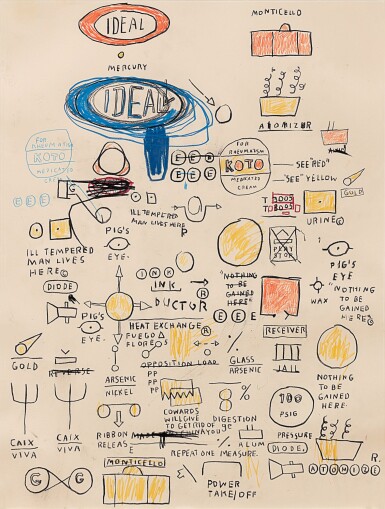 IDEAL
MONTICELLO
MERCURY
IDEAL
ATOMIZER
FOR
RHEUMATISM
KOTO
MEDICATED
CREAM
E E E
E E E
E E E
FOR
RHEUMATISM
KOTO
MEDICATED
CREAM
SEE "RED"
"SEE" YELLOW
GOLD
G
ILL TEMPERED
MAN LIVES HERE
URINE©
ILL TEMPERED
MAN LIVES
HERE©
PIG'S
EYE.
PIG'S
EYE
"NOTHING
TO BE
GAINED
HERE"©
INK
INK
DUCTOR
"NOTHING
TO BE
GAINED
HERE"
®
E E E
WAX
DIODE
PIG'S
EYE.
HEAT EXCHANGER
FUEGO
FLORES
OPPOSITION LOAD
RECEIVER
GLASS
ARSENIC
GOLD
REVERSE
ARSENIC
NICKEL
PP
PP
PP
NOTHING
TO BE
GAINED
HERE.
100
PSIG
CAIX
VIVA
CAIX
VIVA
RIBBON
RELEAS
E
COWARDS
WILL GIVE
TO GET RID OF
YOU
DIGESTION
%
ALUM
PRESSURE
DIODE.
R.
MONTICELLO
REPEAT ONE MEASURE.
ATOMIZE
G G
POWER
TAKE/OFF